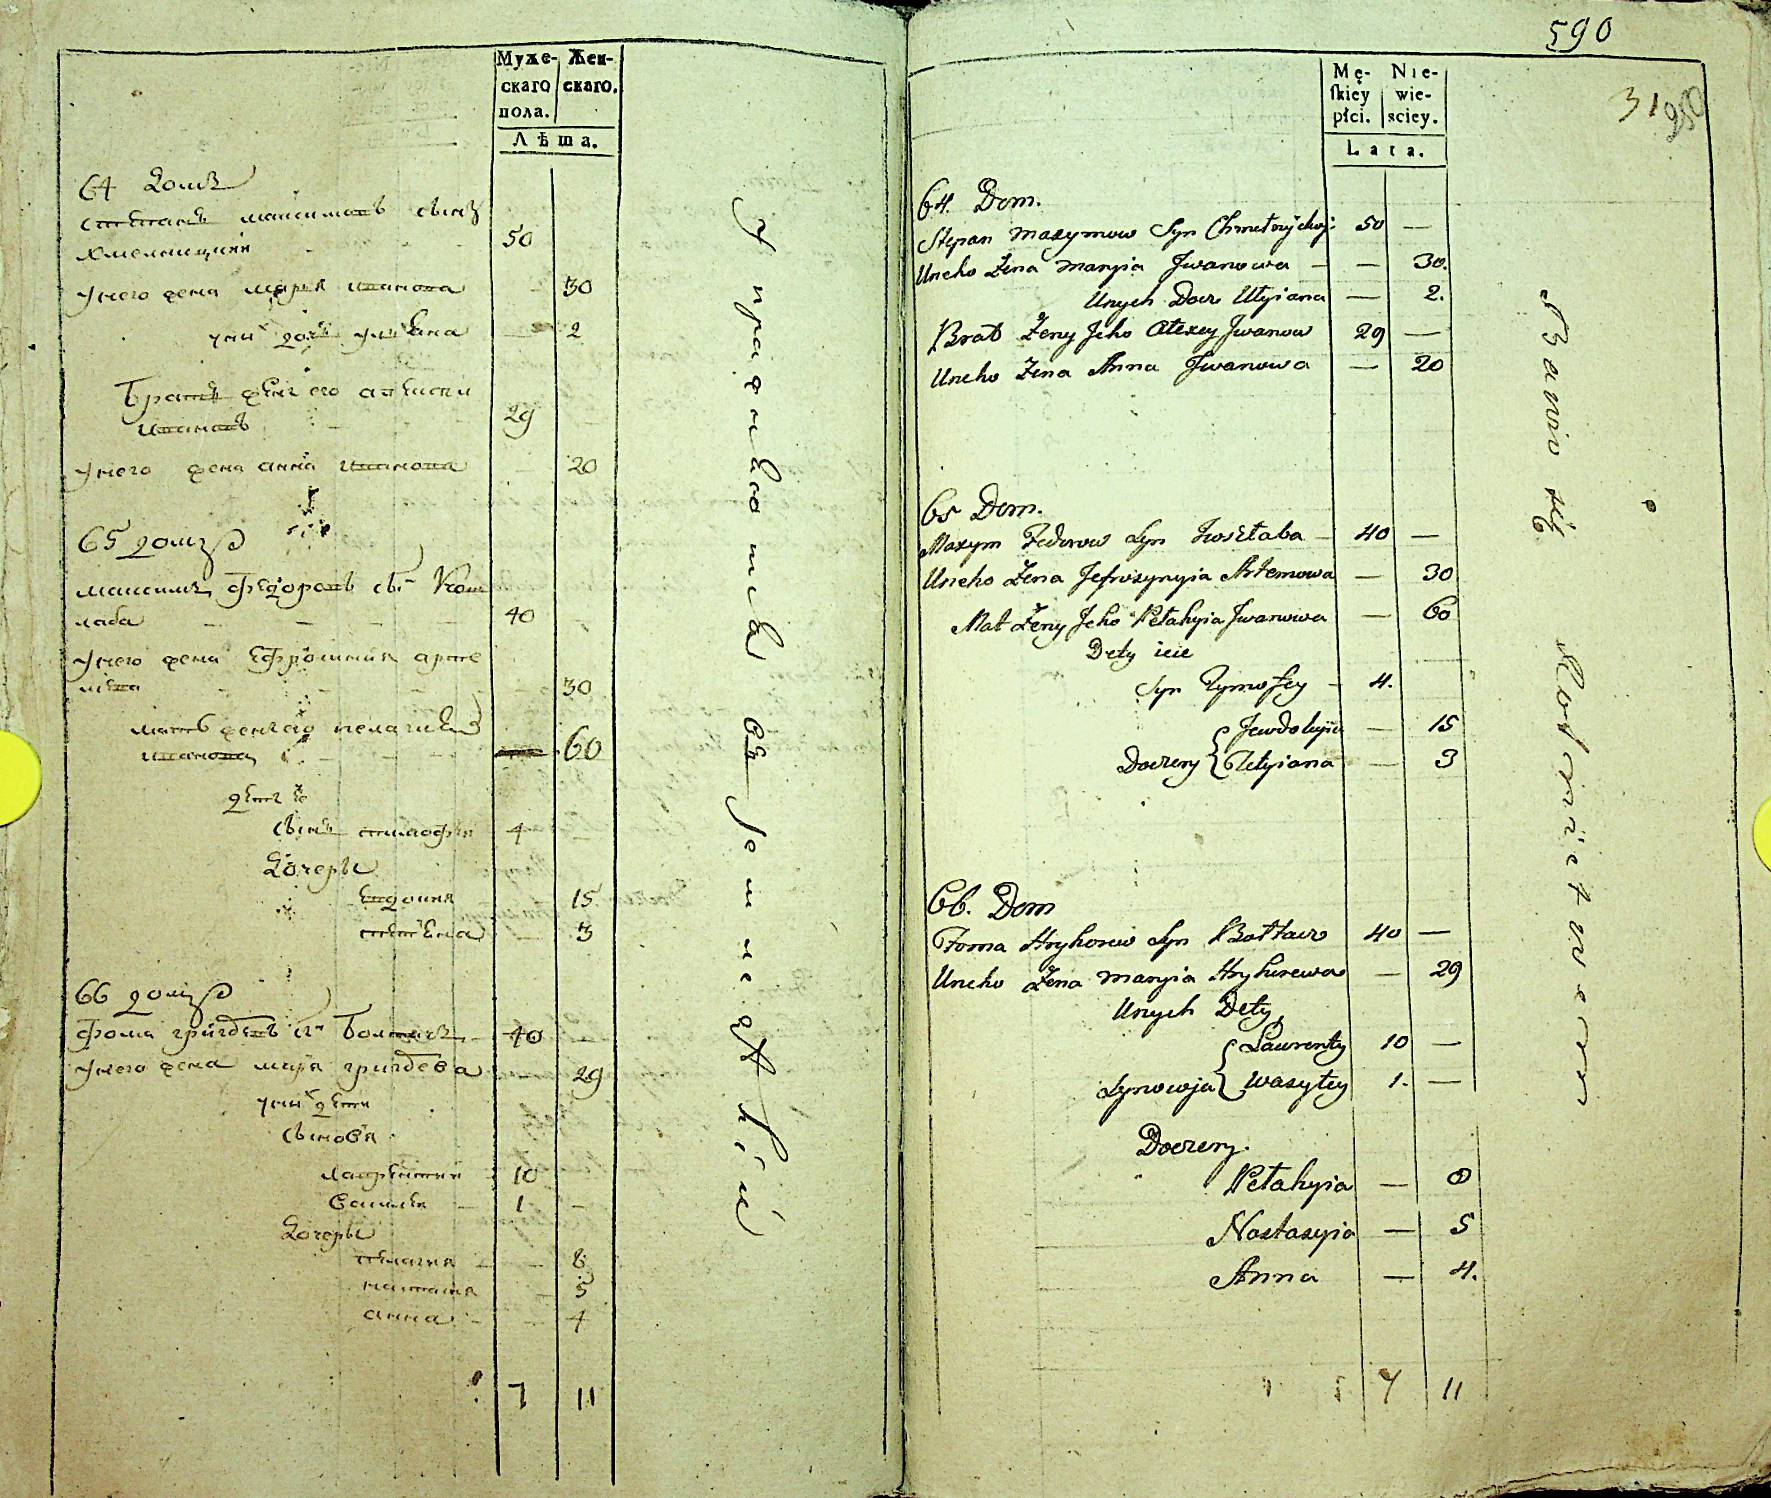 Муже-
скаго
пола.
Жен-
скаго.
Лѣта.
64 домъ
степанъ максимовъ сынъ
хмелницкии 50
унего жена мария иванова 30
уних дочь улияна 2
братъ жены его алексеи
ивановъ 29
унего жена анна иванова 20
65 домъ
максимъ федоровъ сы
лаба 40
унего жена ефросиния арте
мова 30
мать жены его пелагия
иванова 60
дети
сынъ тимофеи 4
дочеры
евдокия 15
татияна 3
66 домъ
фома григоревъ сы
40
унего жена мария григорева 29
уних дети
сыновя
лаврентии 10
василеи 1
дочеры
пелагия 8
настасия 5
анна 4
7 11
упражняются въ
590
31
250
Mę-
skiey
płci.
Nie-
wie-
sciey.
Lata.
64. Dom.
Stepan Maxymow Syn Chmelnyckyj 50 —
Uneho Żena Maryia Jwanowa — — 30.
Unych Docz Ulyiana — 2.
Brat Żeny Jeho Alexey Jwanow 29 —
Uneho Żena Anna Jwanowa — 20
65 Dom.
Maxym Fedorow Syn 40 —
Uneho Żena Jefrozynyia Artemowa — 30
Mat Żeny Jeho Pełahyia Jwanowa — 60
Dety ieie
Syn Tymofey — 4.
Jewdokyia — 15
Doczery { Tetyiana — 3
66. Dom
Foma Hryhorew Syn 40 —
Uneho Żena Maryia Hryhorewa — 29
Unych Dety
Lawrenty 10 —
Synowja { Wasyley 1. —
Doczery.
Pełahyia — 8
Nastasyia — 5
Anna — 4.
7 11
Bawią się